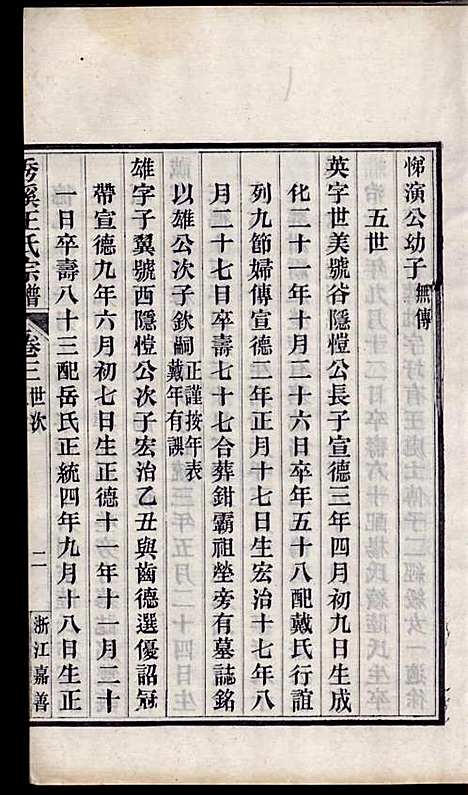 悌演公幼子無傳
五世
英字世美號谷隱愷公長子宣德三年四月初九日生成
化二十一年十月二十六日卒年五十八配戴氏行誼
列九節婦傳宣德二年正月十七日生宏治十七年八
月二十七日卒壽七十七合葬鉗霸祖塋旁有墓誌銘
以雄公次子欽嗣正謹按年表戴年有誤
雄字子翼號西隱愷公次子宏治乙丑與齒德選優詔冠
帶宣德九年六月初七日生正德十一年十一月二十
一日卒壽八十三配岳氏正統四年九月十八日生正
秀溪王氏宗譜 卷三 世次 二 浙江嘉善